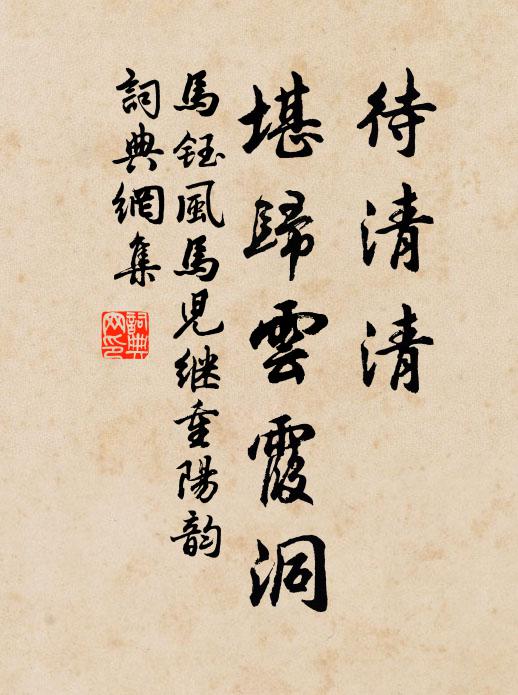 待清清
堪歸雲霞洞
馬鈺風馬児継重陽韵
詞典網集
詞典
网印